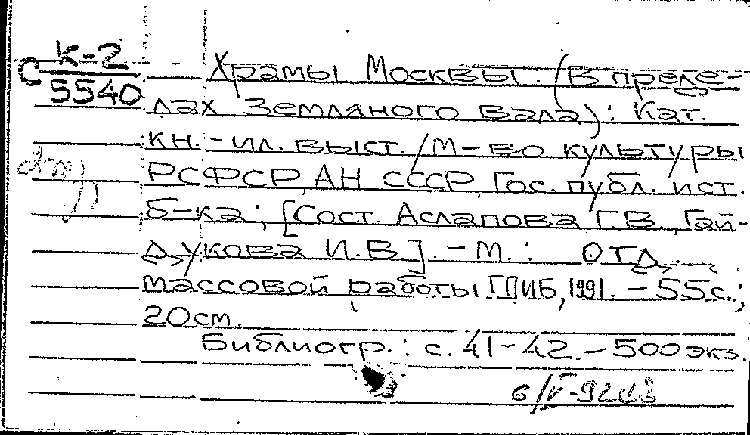 С К-2
5540
Храмы Москвы. (В преде-
лах Земляного вала): Кат.
кн.-ил. выст. / М-во культуры
РСФСР, АН СССР, Гос. публ. ист.
б-ка; [Сост. Аслапова Г.В., Гай-
дукова И.В.]. - М.: Отд.
массовой работы ГПИБ, 1991. - 55 с.;
20 см.
Библиогр.: с. 41-42. - 500 экз.
6/V-92